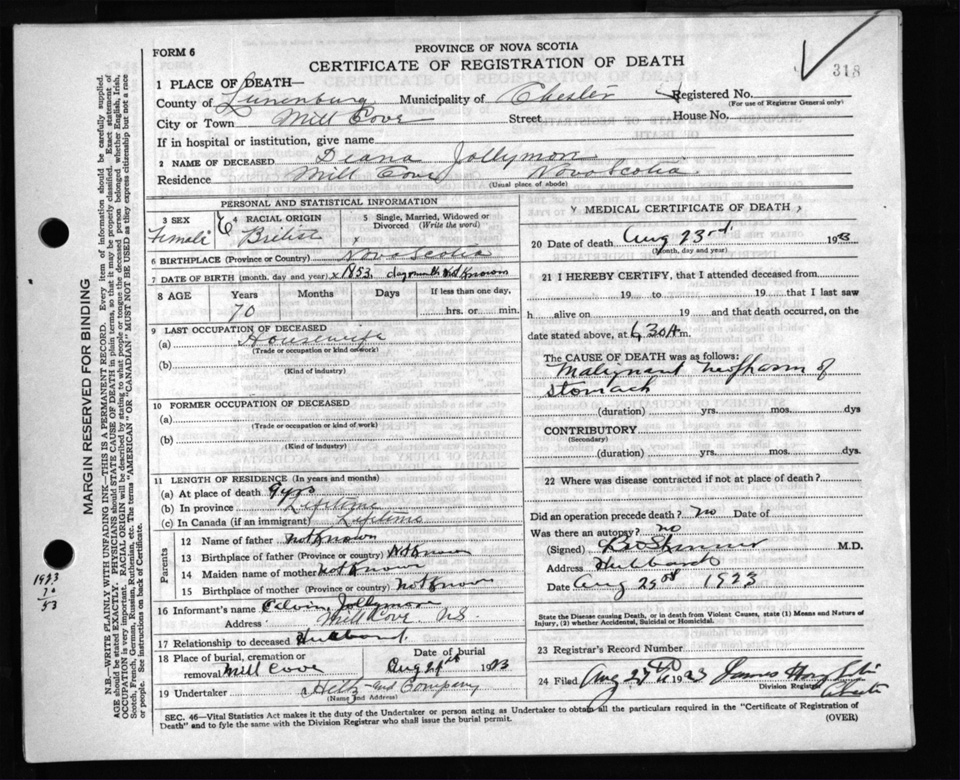 318
FORM 6
PROVINCE OF NOVA SCOTIA
CERTIFICATE OF REGISTRATION OF DEATH
1 PLACE OF DEATH—
County of Lunenburg Municipality of Chester Registered No.
(For use of Registrar General only)
City or Town Mill Cove Street House No.
If in hospital or institution, give name
2 NAME OF DECEASED Deana Jollymon
Residence Mill Cove Nova Scotia
(Usual place of abode)
PERSONAL AND STATISTICAL INFORMATION
3 SEX Female
4 RACIAL ORIGIN British
5 Single, Married, Widowed or Divorced (Write the word)
x
6 BIRTHPLACE (Province or Country) Nova Scotia
7 DATE OF BIRTH (month, day and year) x 1853 day month not known
8 AGE Years Months Days If less than one day,
70 hrs. or min.
9 LAST OCCUPATION OF DECEASED
(a) Housewife
(Trade or occupation or kind of work)
(b)
(Kind of industry)
10 FORMER OCCUPATION OF DECEASED
(a)
(Trade or occupation or kind of work)
(b)
(Kind of industry)
11 LENGTH OF RESIDENCE (In years and months)
(a) At place of death 9 yrs
(b) In province Lifetime
(c) In Canada (if an immigrant) Lifetime
Parents
12 Name of father not known
13 Birthplace of father (Province or country) Not Known
14 Maiden name of mother not Known
15 Birthplace of mother (Province or country) not Known
16 Informant's name Calvin Jollymon
Address Mill Cove N.S.
17 Relationship to deceased Husband
18 Place of burial, cremation or removal Mill Cove
Date of burial
Aug 1923
19 Undertaker and Company
(Name and Address)
MEDICAL CERTIFICATE OF DEATH
20 Date of death Aug 23rd 1923
(Month, day and year)
21 I HEREBY CERTIFY, that I attended deceased from
19 to 19 that I last saw
h alive on 19 and that death occurred, on the
date stated above, at 6 30 A m.
The CAUSE OF DEATH was as follows:
Malignant neoplasm of
stomach
(duration) yrs. mos. dys
CONTRIBUTORY
(Secondary)
(duration) yrs. mos. dys.
22 Where was disease contracted if not at place of death?
Did an operation precede death? no Date of
Was there an autopsy? no
(Signed) M.D.
Hubbards
Date Aug 1923
State the Disease causing Death, or in death from Violent Causes, state (1) Means and Nature of Injury, (2) whether Accidental, Suicidal or Homicidal.
23 Registrar's Record Number
24 Filed Aug 1923 James
Division Registrar
Chester
SEC. 46—Vital Statistics Act makes it the duty of the Undertaker or person acting as Undertaker to obtain all the particulars required in the "Certificate of Registration of
Death" and to fyle the same with the Division Registrar who shall issue the burial permit.
(OVER)
MARGIN RESERVED FOR BINDING
N.B.—WRITE PLAINLY WITH UNFADING INK—THIS IS A PERMANENT RECORD. Every item of information should be carefully supplied.
AGE should be stated EXACTLY. PHYSICIANS should STATE CAUSE OF DEATH in plain terms, so that it may be properly classified. Exact statement of
OCCUPATION is very important. RACIAL ORIGIN will be described by stating to what people or tongue the deceased person belonged whether English, Irish,
Scotch, French, German, Russian, Ruthenian, etc. The terms "AMERICAN" or "CANADIAN" MUST NOT BE USED as they express citizenship but not a race
or people. See instructions on back of Certificate.
1923
70
53